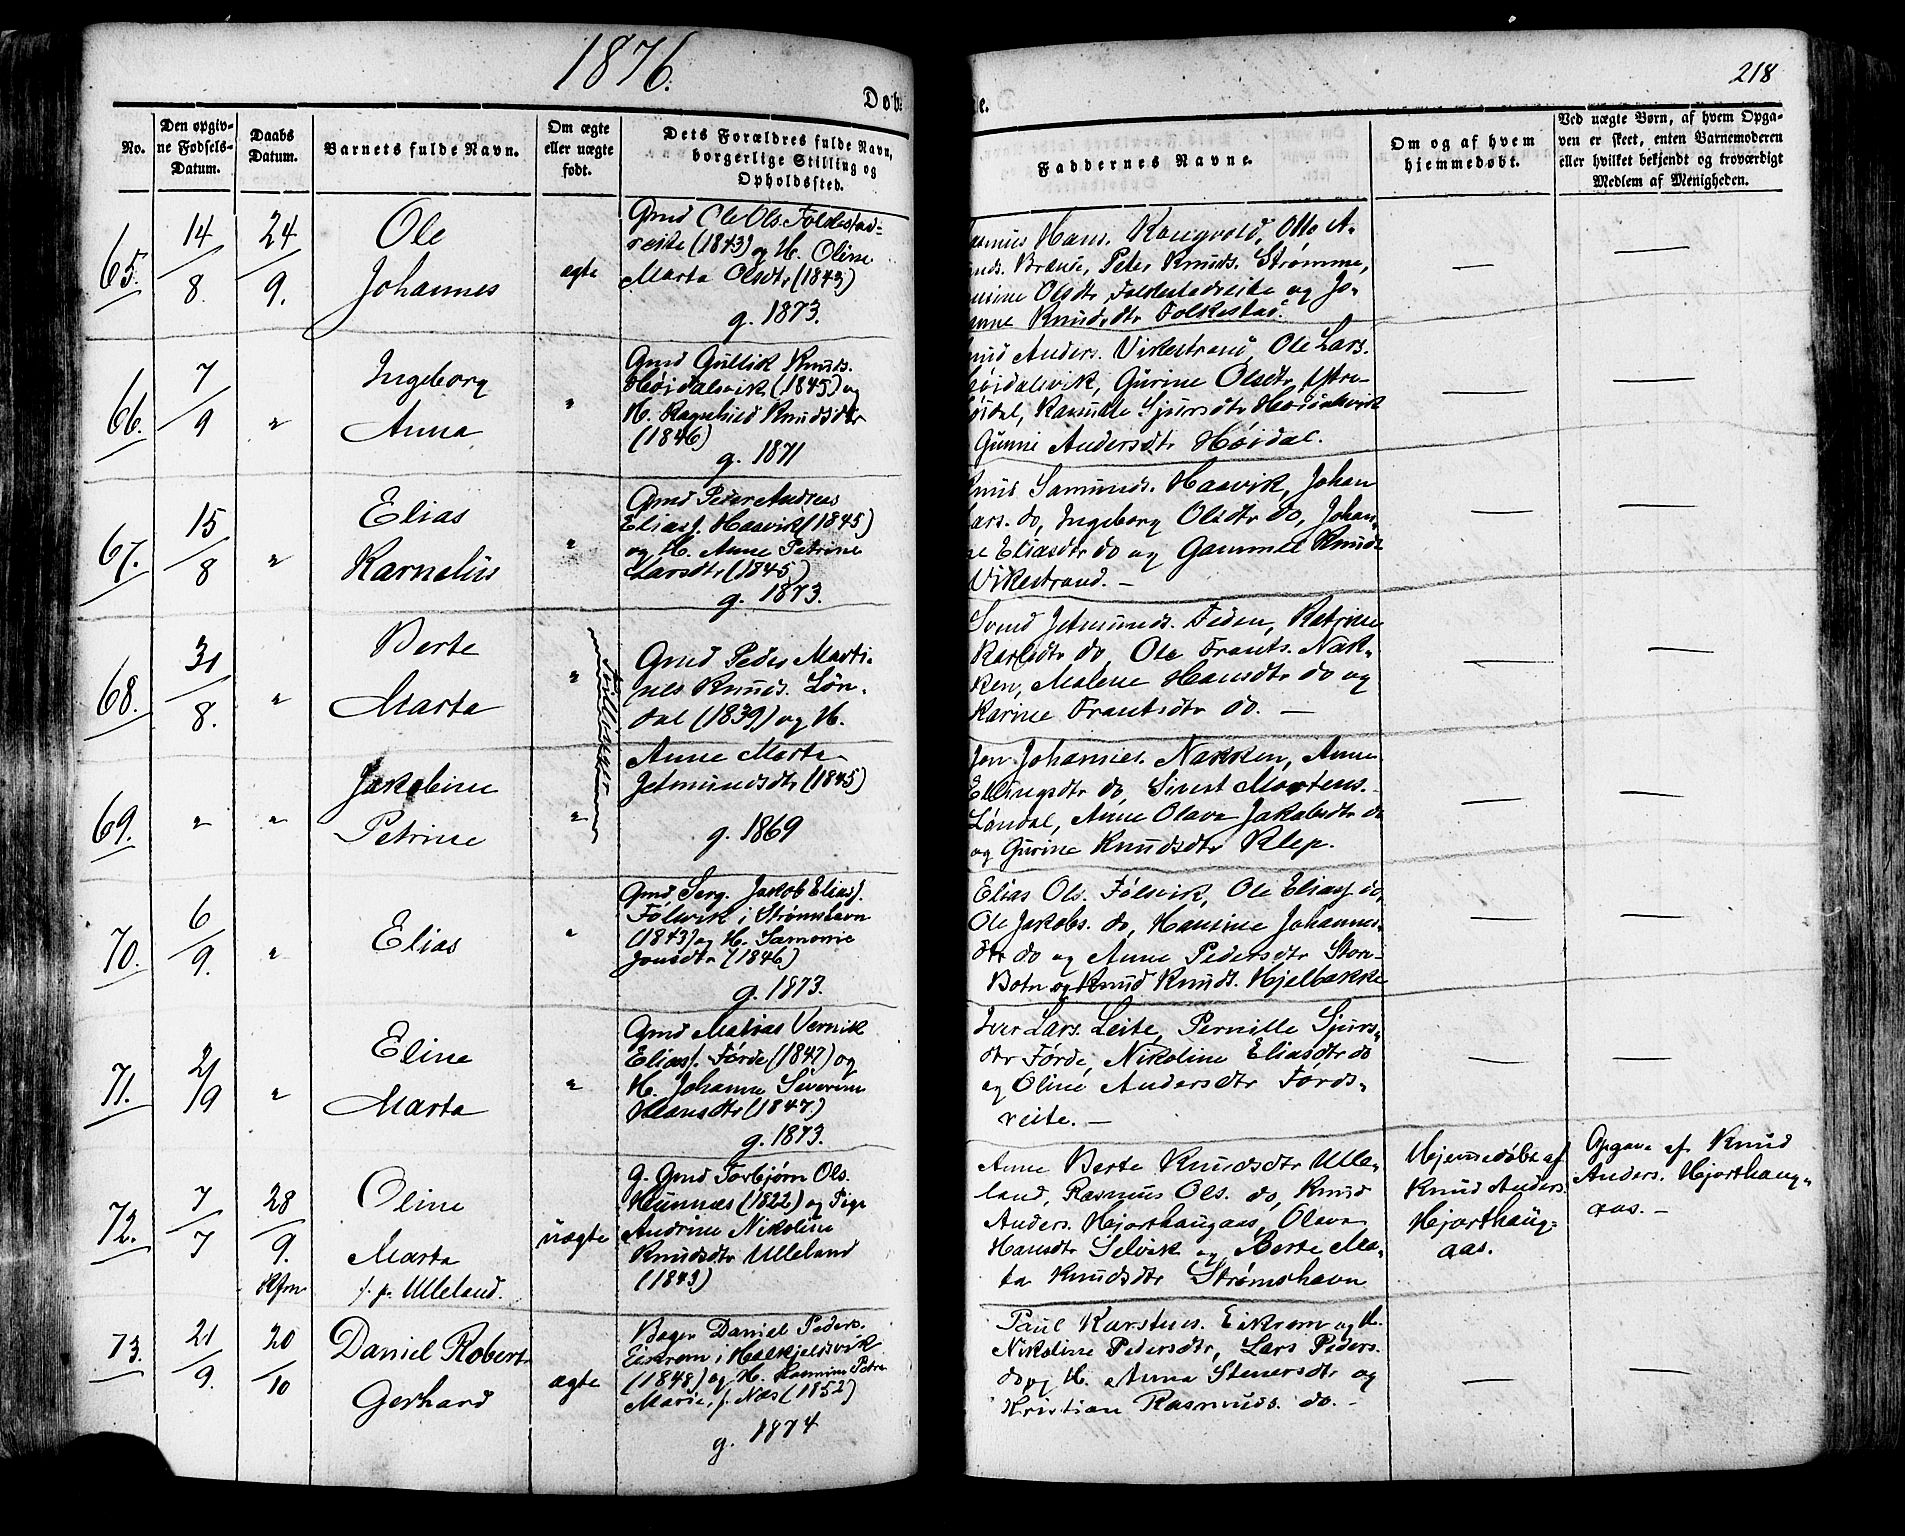 1876.
218
Døb-
e.
No.
Den opgiv-
ne Fødsels-
Datum.
Daabs
Datum.
Barnets fulde Navn.
Om ægte
eller uægte
født.
Dets Forældres fulde Navn,
borgerlige Stilling og
Opholdssted.
Faddernes Navne.
Om og af hvem
hjemmedøbt.
Ved uægte Børn, af hvem Opga-
ven er skeet, enten Barnemoderen
eller hvilket bekjendt og troværdigt
Medlem af Menigheden.
65.
14/8.
24/9.
Ole
Johannes
ægte
Gmd Ole Ols. Foldestad-
reite (1843) og H. Oline
Marta Olsdtr (1843)
g. 1873.
Hans. Rangvold, Otto A-
Brænde, Peter Knuds. Strømme,
Olsdtr Foldestadreite og Jo-
Knudsdtr Folkestad.
—
—
66.
7/9
"
Ingeborg
Anna
"
Gmd Gullik Knuds.
Høidalsvik (1845) og
H. Ragnhild Knudsdtr
(1846)
g. 1871
Anders. Vikestrand, Ole Lars.
Høidalsvik, Gurine Olsdtr Ytre-
Sjursdtr Høidalsvik
Gunni Andersdtr Høidal.
—
—
67.
15/8
"
Elias
Karnelius
"
Gmd Peter Andreas
Eliass. Haavik (1845)
og H. Anne Petrine
Larsdtr (1845)
g. 1873.
Knud Samunds. Haavik, Johan
Lars. do, Ingeborg Olsdtr do, Johan-
ne Eliasdtr do og Gammel Knud
Vikestrand. —
—
—
68.
31/8.
"
Berte
Marta
"
Tvillingsøstre
Gmd Peder Marti-
nus Knuds. Løn-
dal (1839) og H.
Svend Jetmunds. Feden, Katrine
Karlsdtr do, Ole Frants. Nak-
ken, Malene Hansdtr do og
Karine Frantsdtr do. —
—
—
69.
"
"
Jakobine
Petrine
"
Anne Marte
Jetmundsdtr (1845)
g. 1869
Jon Johannes. Nakken, Anne
Ellingsdtr do, Sivert Mortens.
Løndal, Anne Olava Jakobsdtr do
og Gurine Knudsdtr Klep.
—
—
70.
6/9.
"
Elias
"
Gmd, Serg. Jakob Eliass.
Følsvik i Strømshavn
(1843) og H. Samonie
Jonsdtr (1846)
g. 1873.
Elias Ols. Følsvik, Ole Eliass do,
Ole Jakobs. do, Hansine Johannes-
dtr do og Anne Pedersdtr Stor-
Botn og Knud Knuds. Hjelbakke
—
—
71.
2/9
"
Eline
Marta
"
Gmd Matias Vernik
Eliass. Førde (1847) og
H. Johanna Severine
Hansdtr (1847)
g. 1873.
Iver Lars. Leite, Pernille Sjurs-
dtr Førde, Nikoline Eliasdtr do
og Oline Andersdtr Førds-
reite. —
—
—
72.
7/7
28/9.
Kfm
Oline
Marta
f. p. Ulleland.
uægte
G. Gmd Torbjørn Ols.
Hunnæs (1822) og Pige
Andrine Nikoline
Knudsdtr Ulleland
(1843)
Anne Berte Knudsdtr Ulle-
land, Rasmus Ols. do, Knud
Anders. Hjorthaugaas, Olava
Hansdtr Selvik og Berte Ma-
ta Knudsdtr Strømshavn
Hjemmedøbt af
Knud Anders.
Hjorthaug-
aas.
Opgave af Knud
Anders. Hjorthaug-
aas. —
73.
21/9.
20/10
Daniel Robert
Gerhard
ægte
Bager Daniel Peders.
Eikrem i Halkjeldsvik
(1848) og H. Rasmine Petra
Marie, f. Næs (1852)
g. 1874
Paul Karstens. Eikrem og H.
Nikoline Pedersdtr, Lars Peders.
do og H. Anna Stenersdtr og
Kristian Rasmuds. do. —
—
—